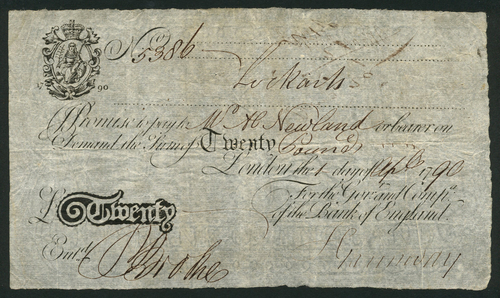 No 5386
Lockarts
I Promise to pay to Mr. A Newland or bearer on
Demand the Sum of Twenty Pounds
London the 1 day of 1790
For the Govr. and Compa.
of the Bank of England.
£ Twenty
Entd.